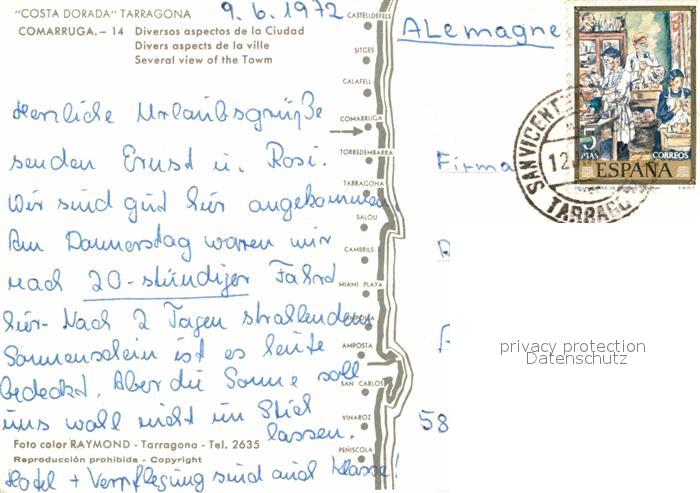 "COSTA DORADA" TARRAGONA
COMARRUGA. – 14 Diversos aspectos de la Ciudad
Divers aspects de la ville
Several view of the Towm
9.6.1972
Herzliche Urlaubsgrüße
senden Ernst u. Rosi.
Wir sind gut hier angekommen.
Am Donnerstag waren wir
nach 20-stündiger Fahrt
hier. Nach 2 Tagen strahlendem
Sonnenschein ist es heute
bedeckt. Aber die Sonne soll
uns wohl nicht im Stich
lassen.
Hotel + Verpflegung sind auch klasse!
Foto color RAYMOND - Tarragona - Tel. 2635
Reproducción prohibida - Copyright
CASTELLDEFELS
SITGES
CALAFELL
COMARRUGA
TORREDEMBARRA
TARRAGONA
SALOU
CAMBRILS
MIAMI PLAYA
AMPOSTA
SAN CARLOS
VINAROZ
PEÑISCOLA
ALemagne
Firma
58
5
PTAS
CORREOS
ESPAÑA
SAN VICENTE
12
TARRAG
privacy protection
Datenschutz